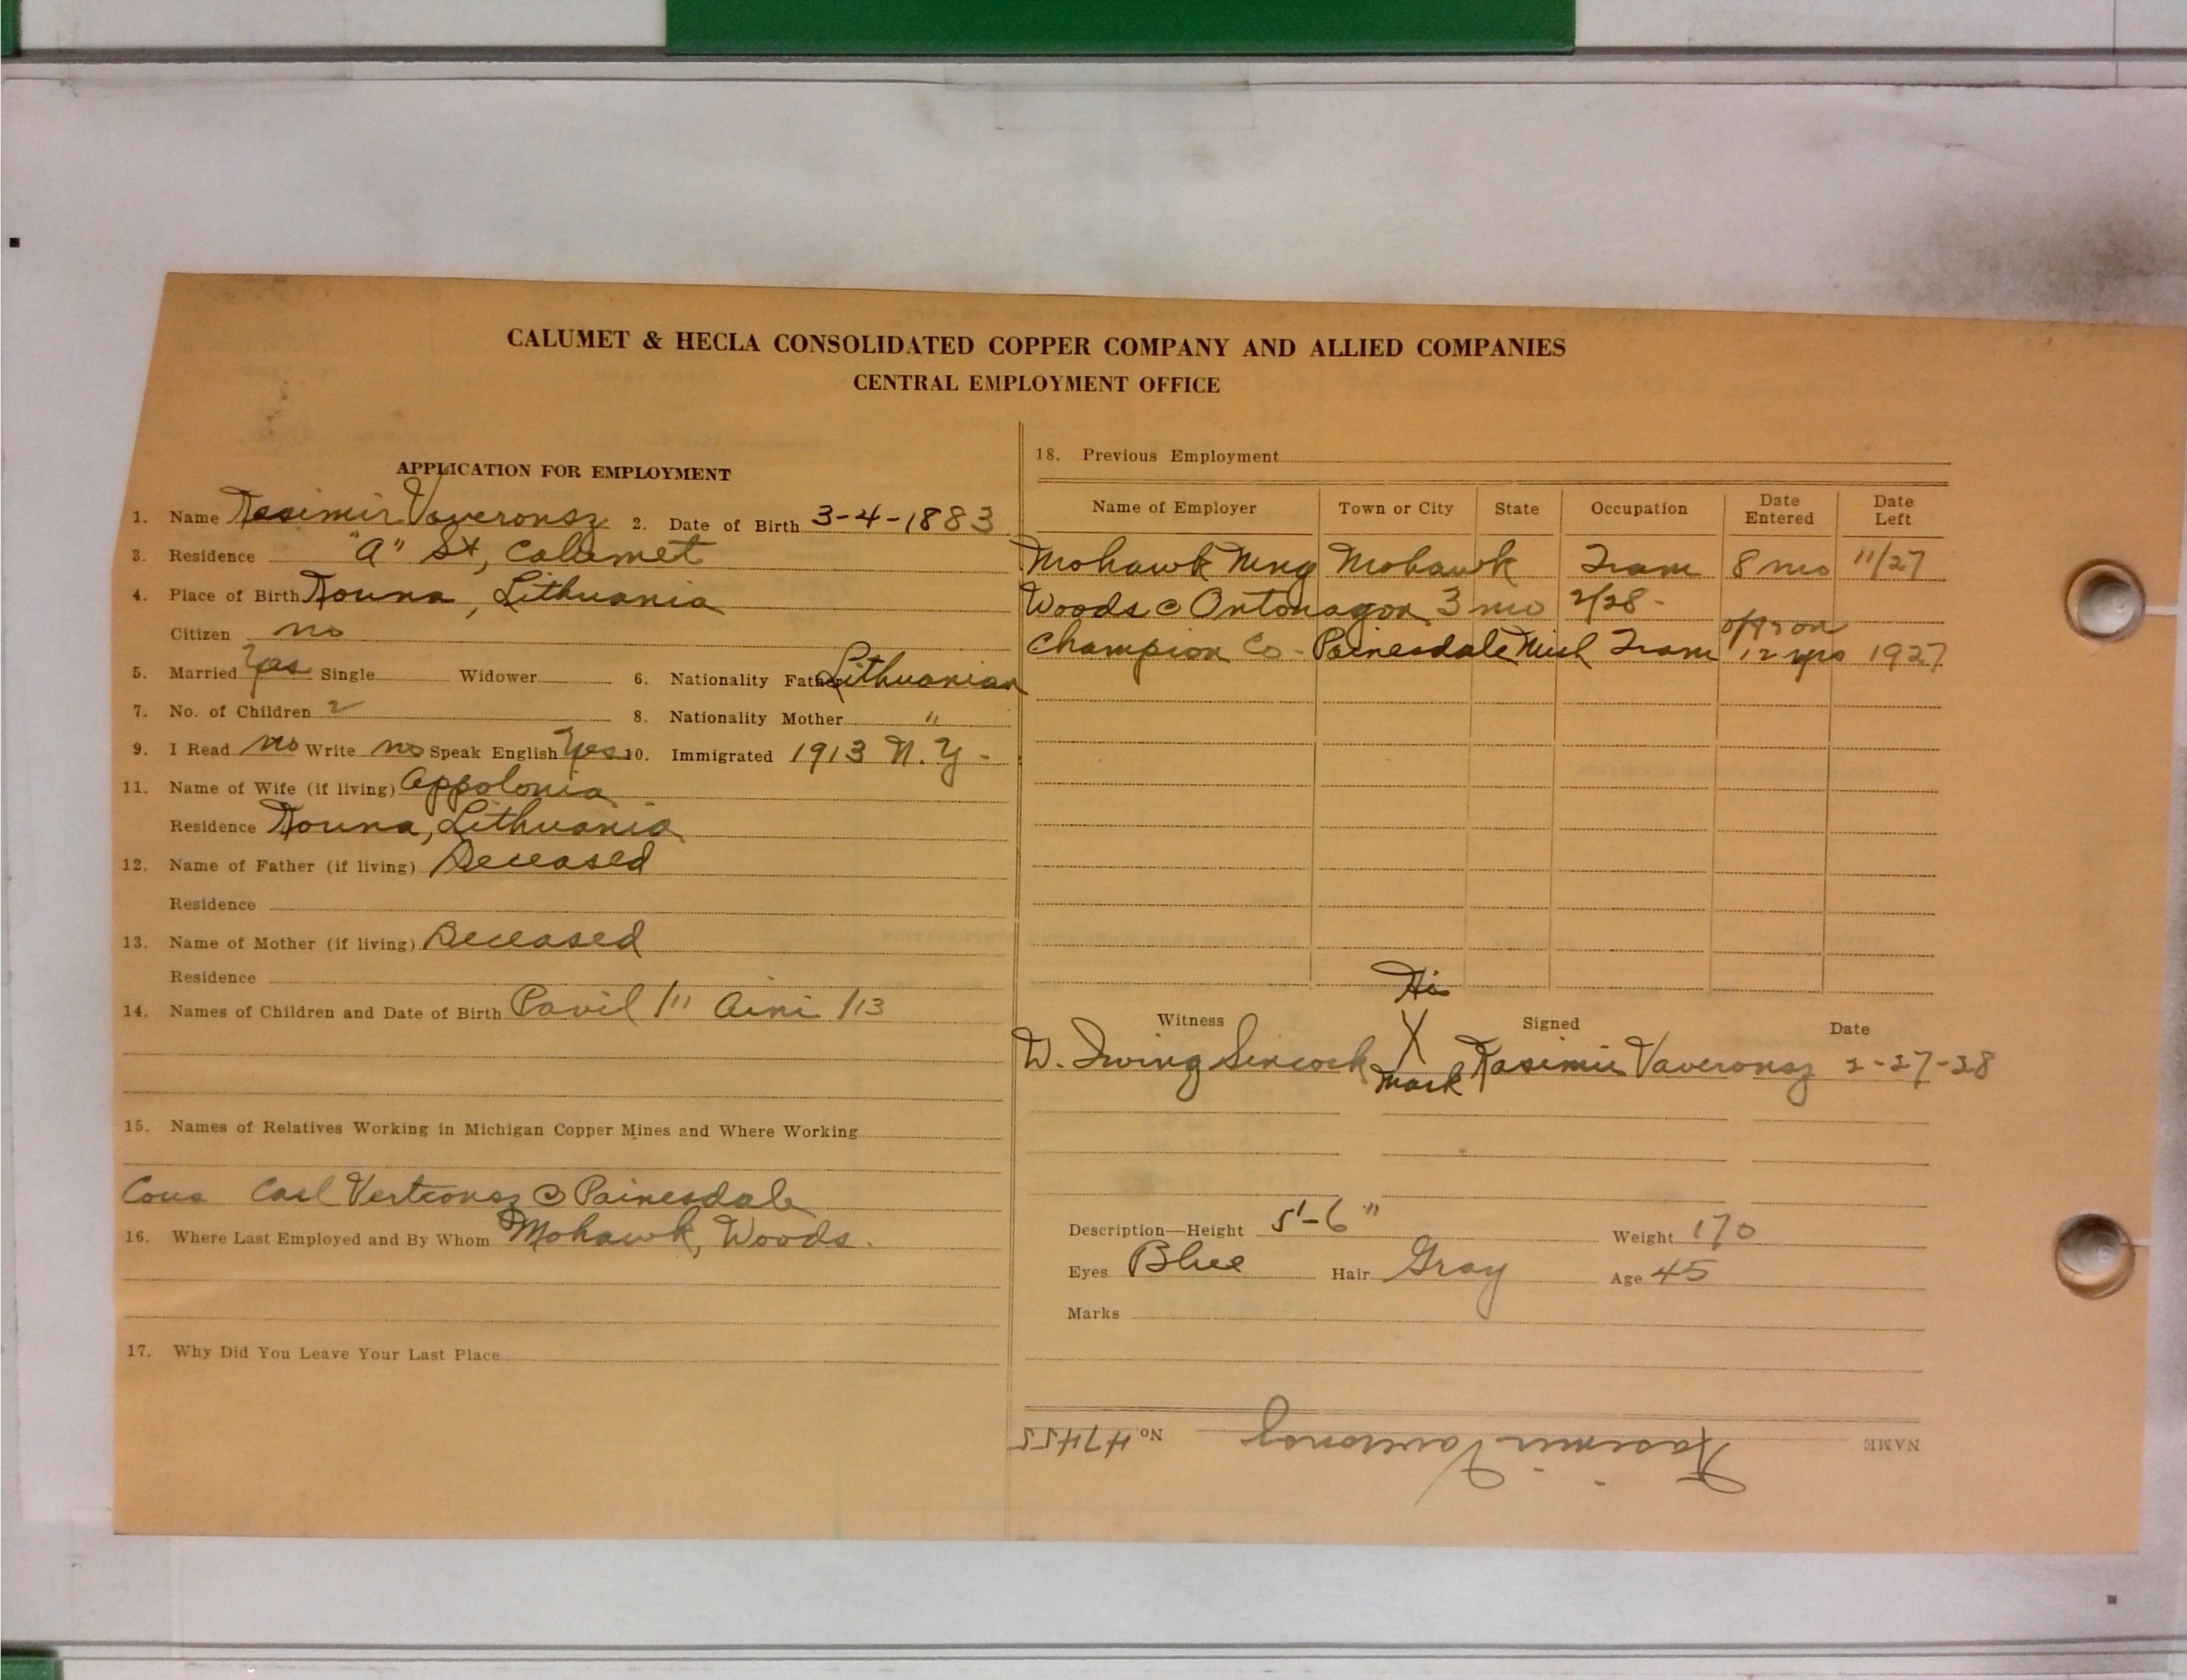 CALUMET & HECLA CONSOLIDATED COPPER COMPANY AND ALLIED COMPANIES
CENTRAL EMPLOYMENT OFFICE
APPLICATION FOR EMPLOYMENT
1. Name Kasimir Vaveronsz 2. Date of Birth 3-4-1883
3. Residence "A" St, Calumet
4. Place of Birth Kouna, Lithuania
Citizen no
5. Married Yes Single Widower 6. Nationality Father Lithuanian
7. No. of Children 2 8. Nationality Mother "
9. I Read no Write no Speak English Yes 10. Immigrated 1913 N.Y-
11. Name of Wife (if living) Appolonia
Residence Kouna, Lithuania
12. Name of Father (if living) Deceased
Residence
13. Name of Mother (if living) Deceased
Residence
14. Names of Children and Date of Birth Pavil /11 Aini /13
15. Names of Relatives Working in Michigan Copper Mines and Where Working
Cous Carl Vertconsz @ Painesdale
16. Where Last Employed and By Whom Mohawk, Woods.
17. Why Did You Leave Your Last Place
18. Previous Employment
Name of Employer Town or City State Occupation Date Entered Date Left
Mohawk Mng Mohawk Tram 8 mo 11/27
Woods @ Ontonagon 3 mo 2/28-
Champion Co - Painesdale Mich Tram off & on 12 yrs 1927
His
Witness X Signed Date
W. Irving Sincock mark Kasimir Vaveronsz 2-27-28
Description—Height 5'-6" Weight 170
Eyes Blue Hair Gray Age 45
Marks
NAME Kasimir Vaveronsz No. 47455